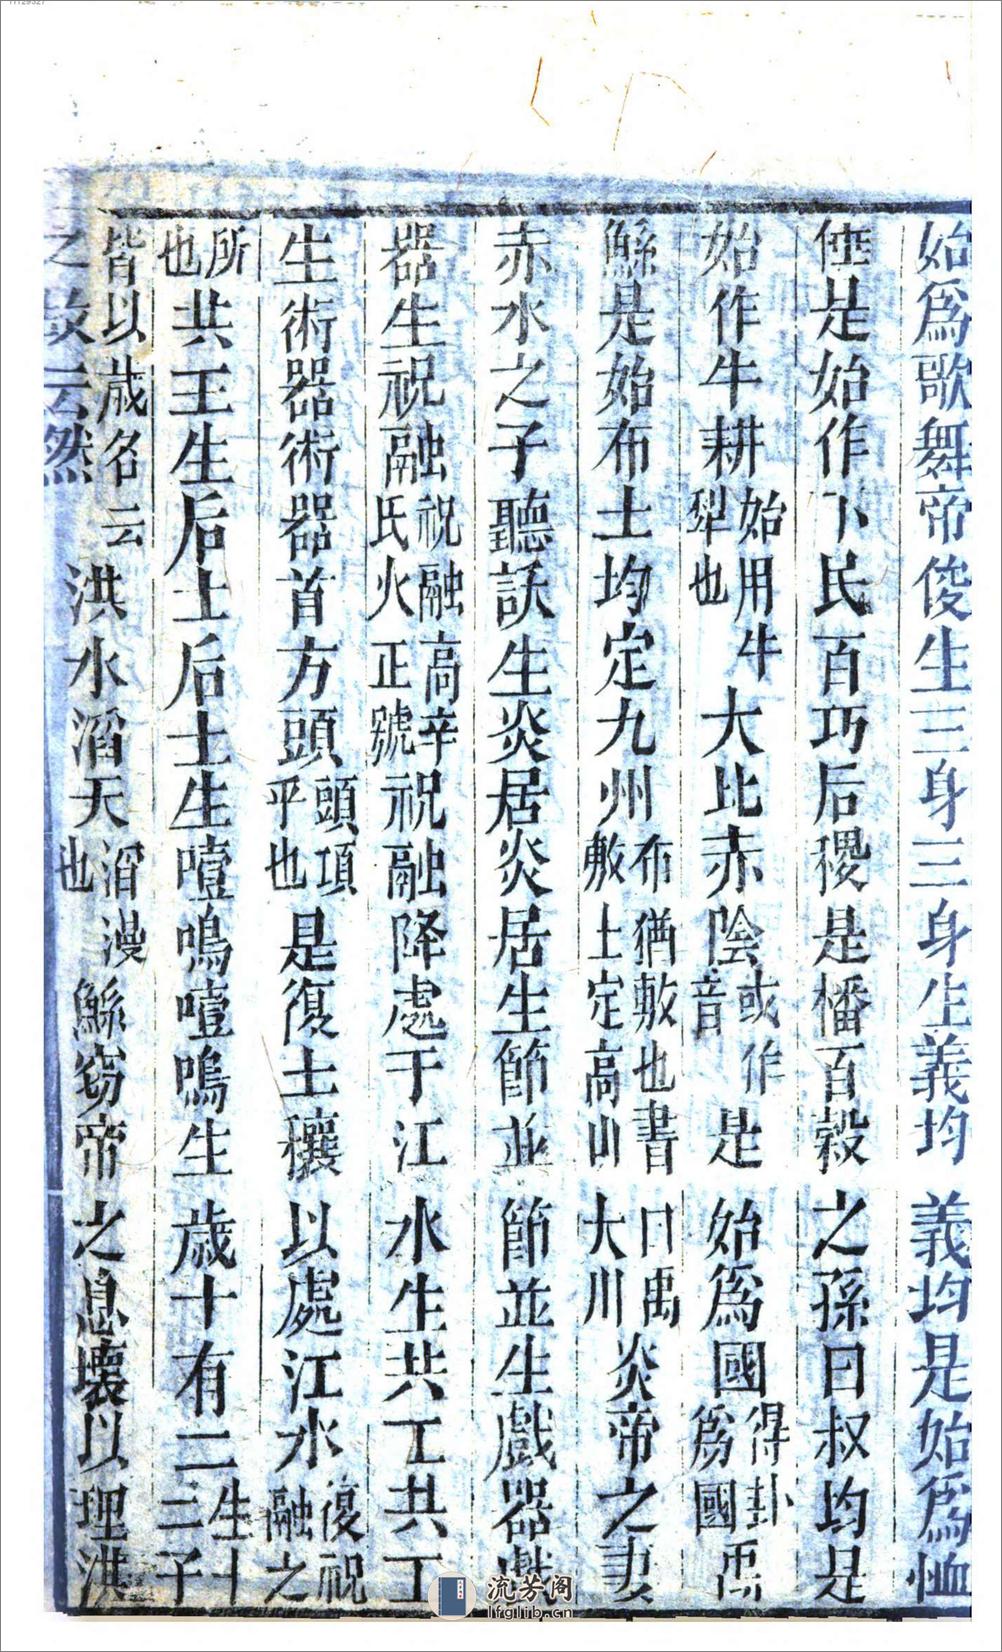 始爲歌舞帝俊生三身三身生義均義均是始爲恤
倕是始作下民百巧后稷是播百榖之孫曰叔均是
始作牛耕始用牛犂也大比赤陰或作音是始爲國得卦爲國禹
鯀是始布土均定九州布猶敷也書曰禹敷土定高山大川炎帝之妻
赤水之子聽訞生炎居炎居生節並節並生戲器戲
器生祝融祝融高辛氏火正號祝融降處于江水生共工共工
生術器術器首方頭頭項平也是復土穰以處江水復祝融之
所也共工生后土后土生噎鳴噎鳴生歲十有二生十二子
皆以歲名云之故云然洪水滔天滔漫也鯀竊帝之息壤以理洪
流芳阁
lfglib.cn